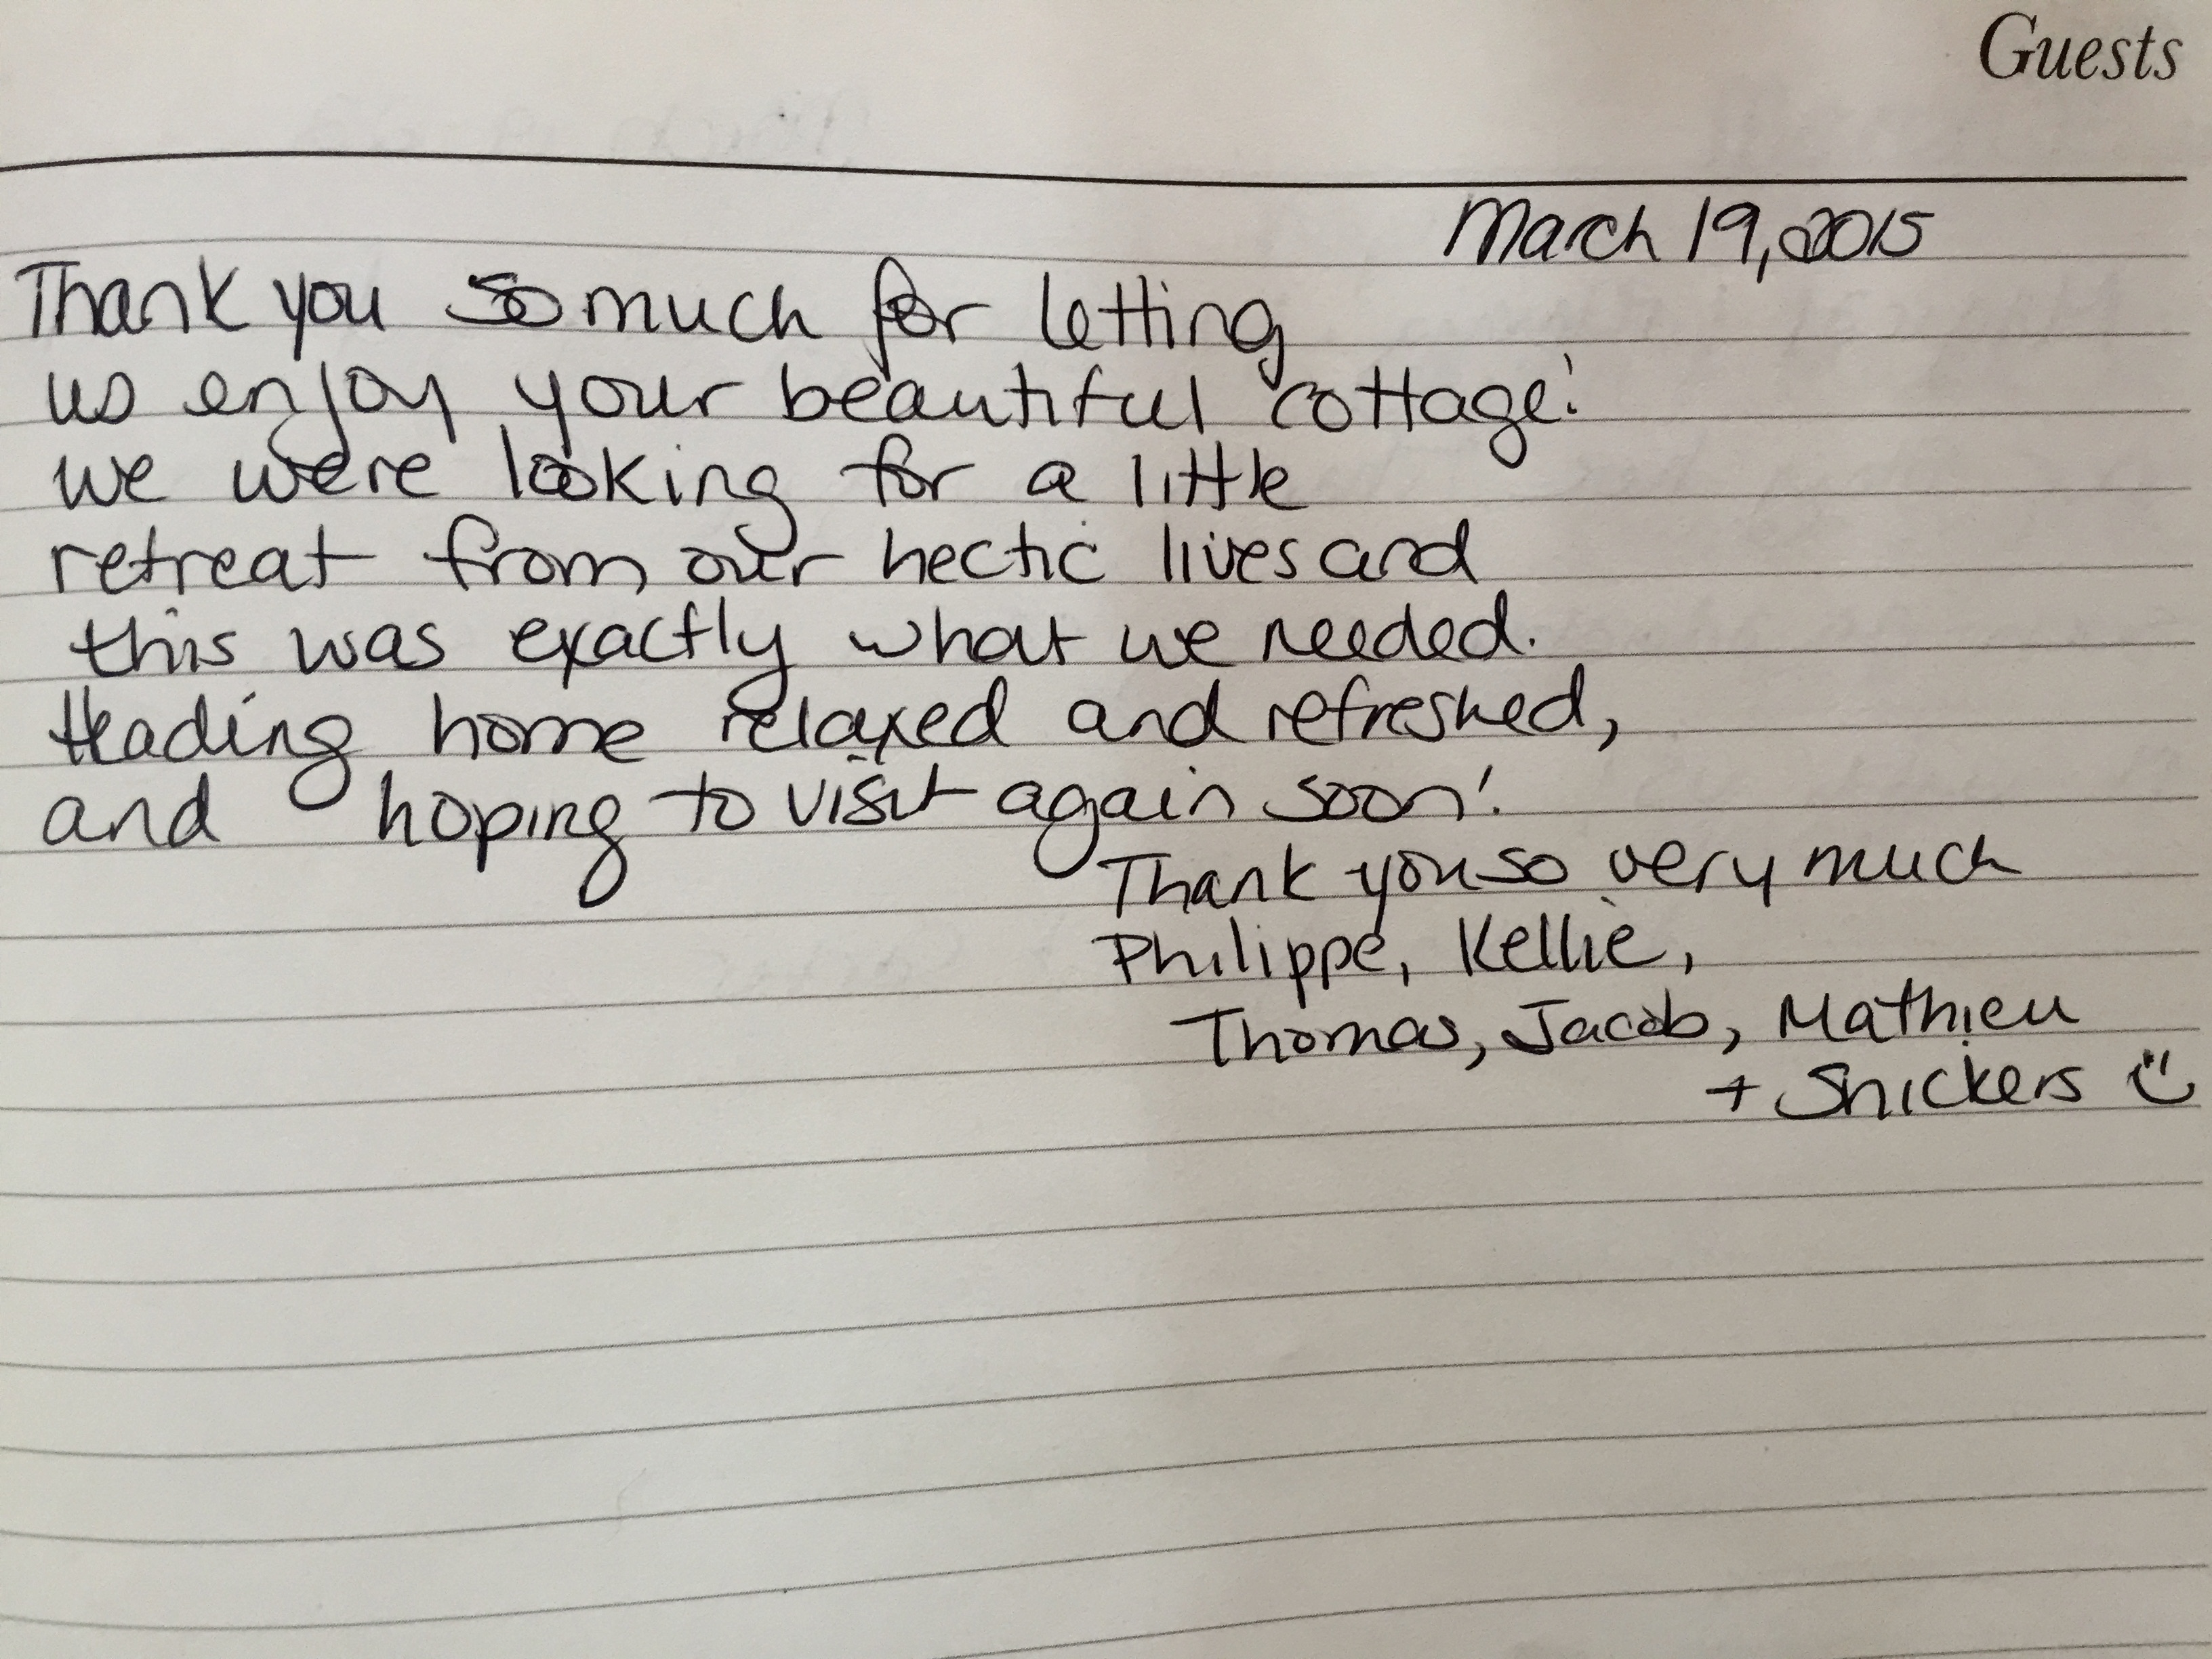 Guests
March 19, 2015
Thank you so much for letting
us enjoy your beautiful cottage!
we were looking for a little
retreat from our hectic lives and
this was exactly what we needed.
Heading home relaxed and refreshed,
and hoping to visit again soon!
Thank you so very much
Philippe, Kellie,
Thomas, Jacob, Mathieu
+ Snickers